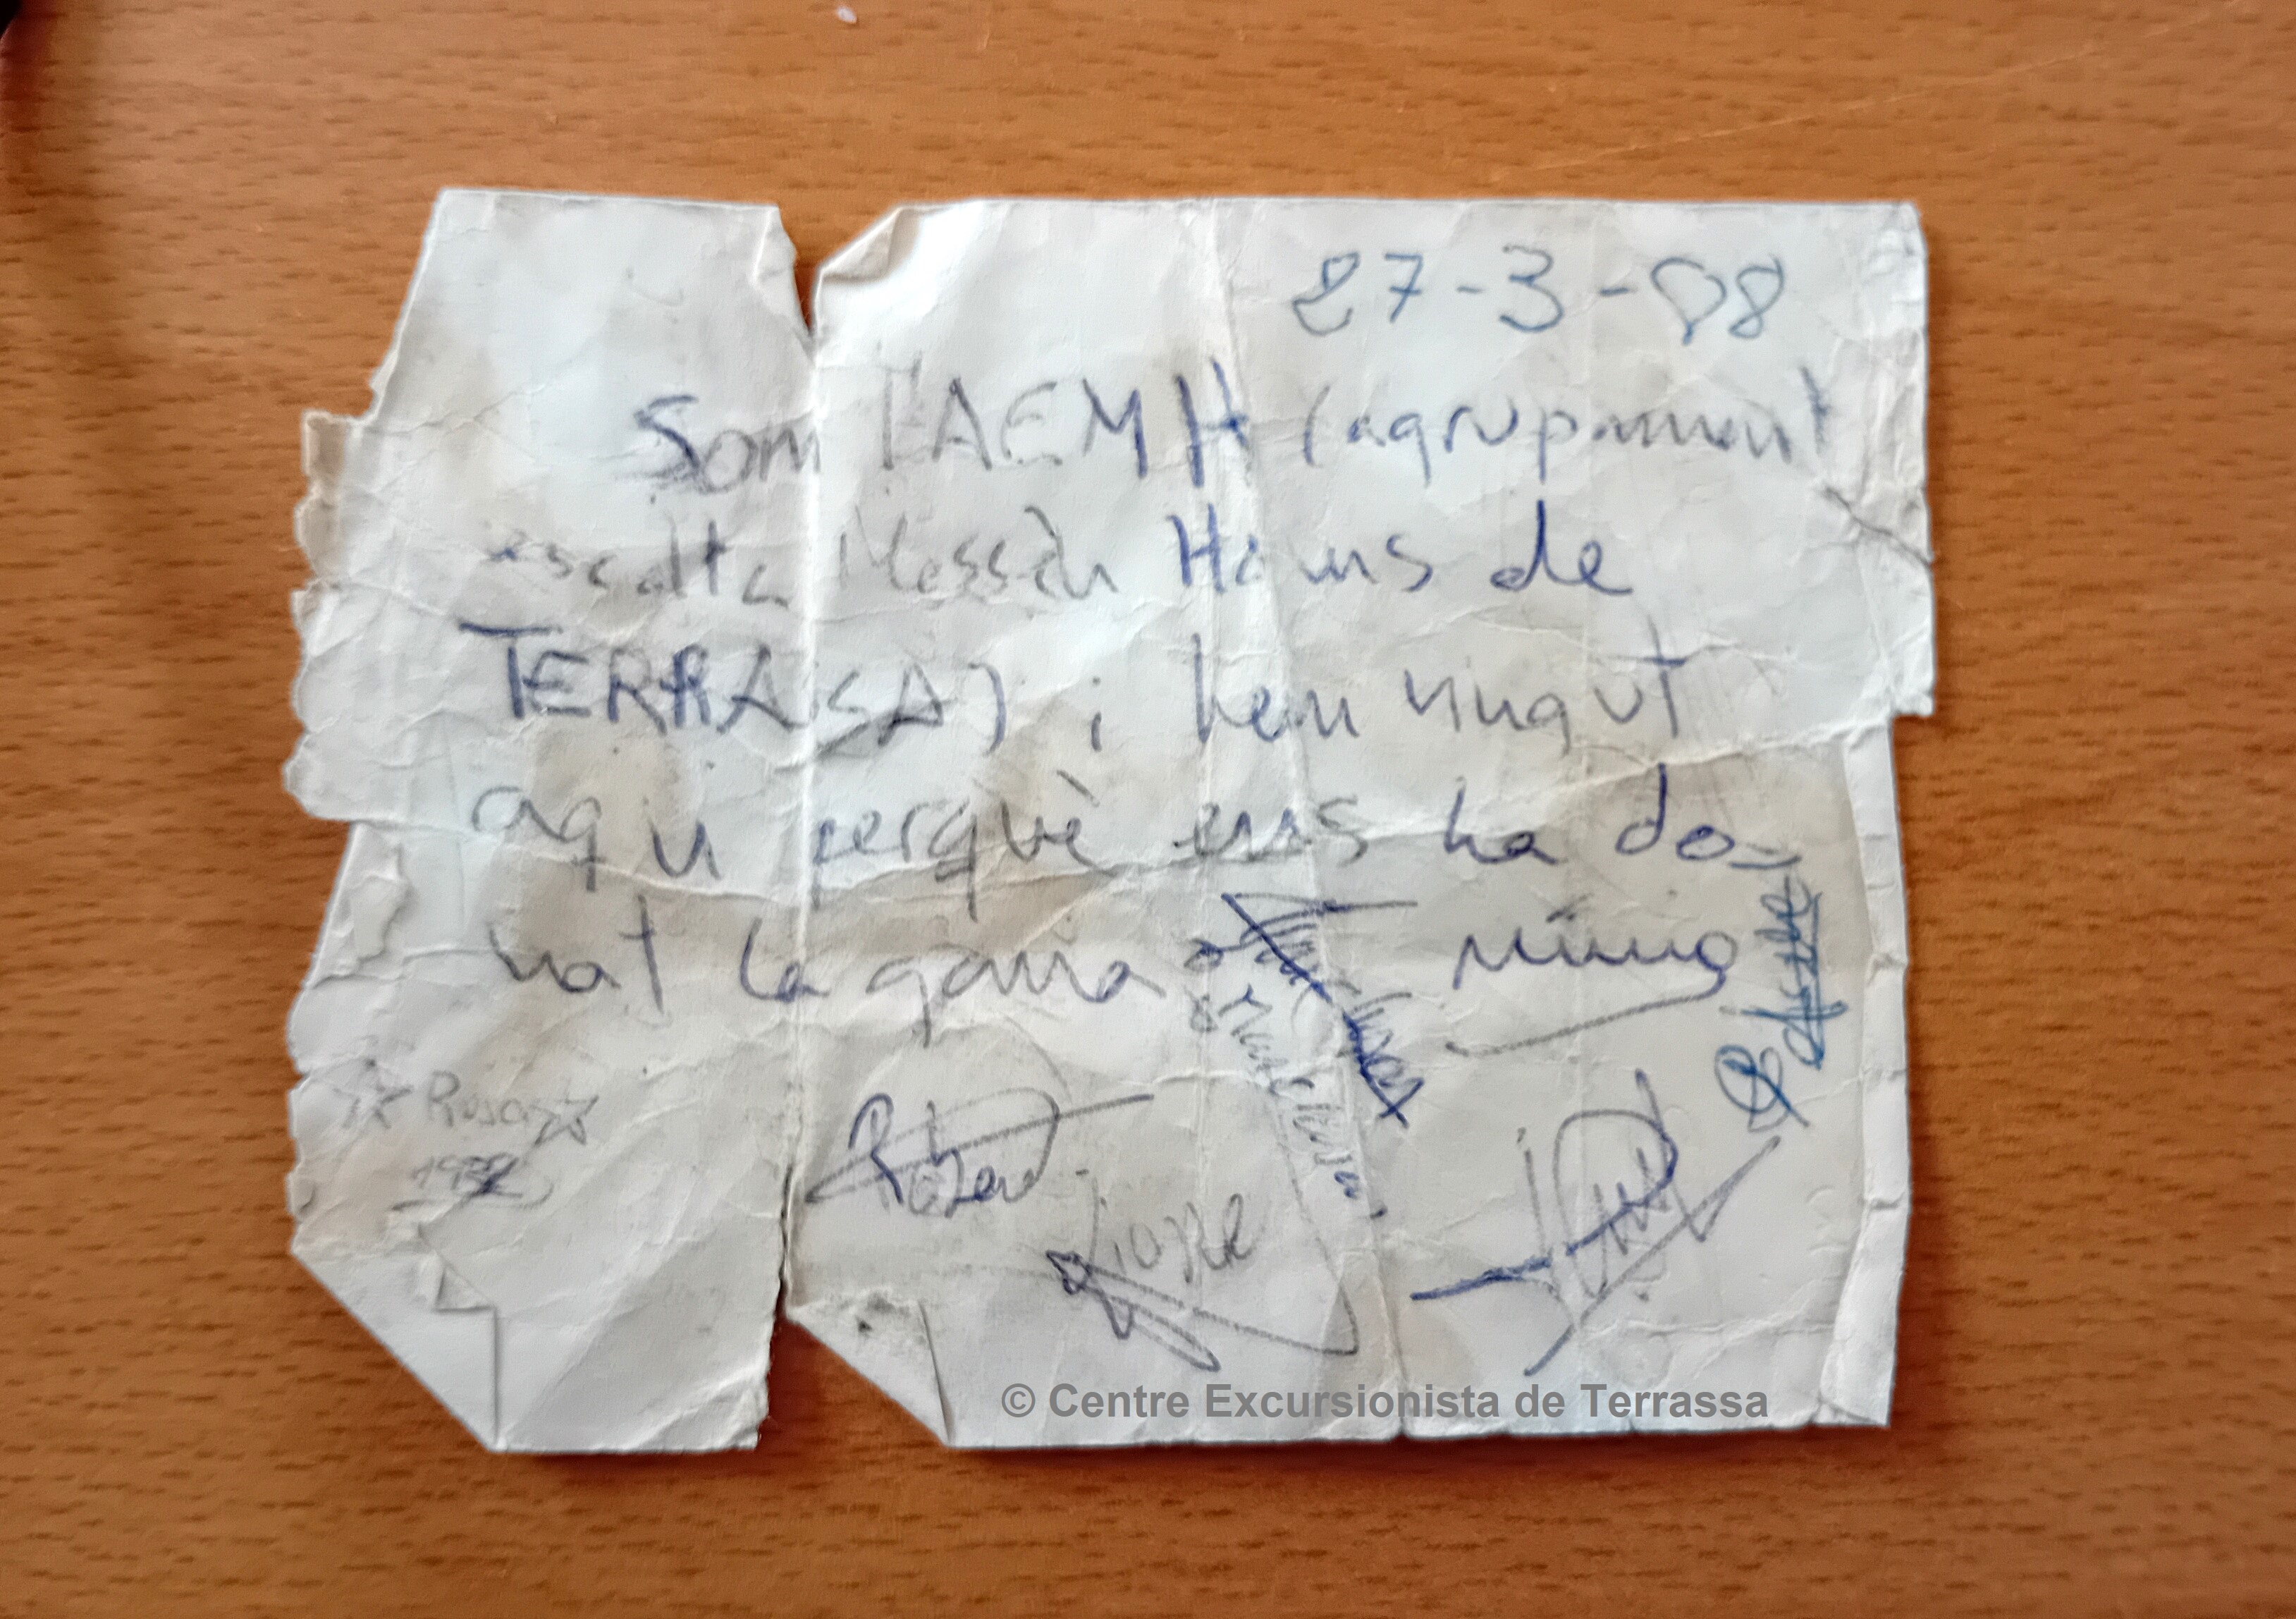 27-3-88
Som l'AEMH (agrupament
escolta Mossèn Homs de
TERRASSA) i hem vingut
aqui perquè ens ha do-
nat la gana
Nuno
☆ Rosa ☆
Robert
Jorge
© Centre Excursionista de Terrassa